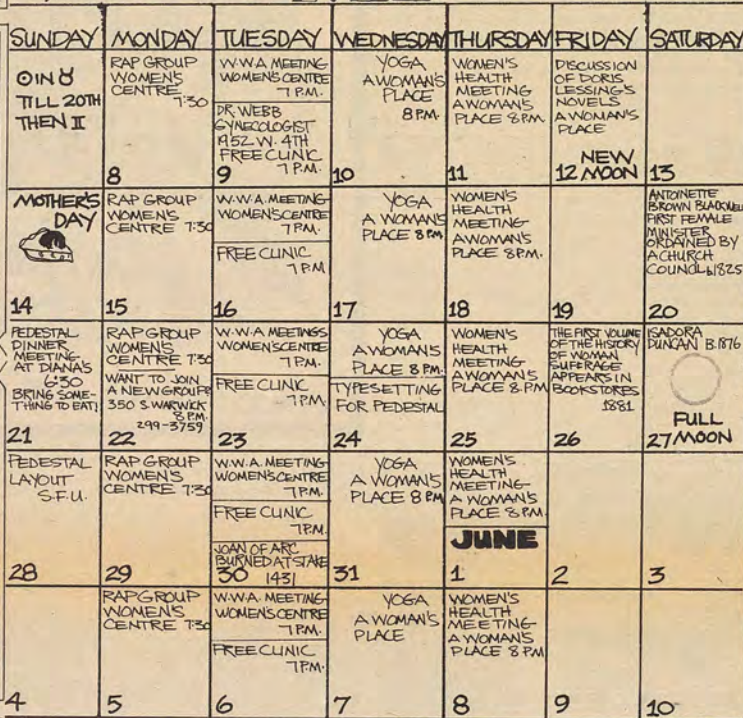 SUNDAY MONDAY TUESDAY WEDNESDAY THURSDAY FRIDAY SATURDAY
☉ IN ♉
TILL 20TH
THEN II
RAP GROUP
WOMEN'S
CENTRE
7:30
8
W.W.A. MEETING
WOMEN'S CENTRE
7 P.M.
DR. WEBB
GYNECOLOGIST
1952 W. 4TH
FREE CLINIC
7 P.M.
9
YOGA
A WOMAN'S
PLACE
8 P.M.
10
WOMEN'S
HEALTH
MEETING
A WOMAN'S
PLACE 8 P.M.
11
DISCUSSION
OF DORIS
LESSING'S
NOVELS
A WOMAN'S
PLACE
NEW
12 MOON
13
MOTHER'S
DAY
14
RAP GROUP
WOMEN'S
CENTRE 7:30
15
W.W.A. MEETING
WOMEN'S CENTRE
7 P.M.
FREE CLINIC
7 P.M
16
YOGA
A WOMAN'S
PLACE 8 P.M.
17
WOMEN'S
HEALTH
MEETING
A WOMAN'S
PLACE 8 P.M.
18
19
ANTOINETTE
BROWN BLACKWELL
FIRST FEMALE
MINISTER
ORDAINED BY
A CHURCH
COUNCIL b. 1825
20
PEDESTAL
DINNER
MEETING
AT DIANA'S
6:30
BRING SOME-
THING TO EAT!
21
RAP GROUP
WOMEN'S
CENTRE 7:30
WANT TO JOIN
A NEW GROUP?
350 S. WARWICK
8 P.M.
299-3759
22
W.W.A. MEETINGS
WOMEN'S CENTRE
7 P.M.
FREE CLINIC
7 P.M.
23
YOGA
A WOMAN'S
PLACE 8 P.M.
TYPESETTING
FOR PEDESTAL
24
WOMEN'S
HEALTH
MEETING
A WOMAN'S
PLACE 8 P.M
25
THE FIRST VOLUME
OF THE HISTORY
OF WOMAN
SUFFERAGE
APPEARS IN
BOOKSTORES
1881
26
ISADORA
DUNCAN B. 1876
FULL
27 MOON
PEDESTAL
LAYOUT
S.F.U.
28
RAP GROUP
WOMEN'S
CENTRE 7:30
29
W.W.A. MEETING
WOMEN'S CENTRE
7 P.M.
FREE CLINIC
7 P.M.
JOAN OF ARC
BURNED AT STAKE
30 1431
YOGA
A WOMAN'S
PLACE 8 P.M
31
WOMEN'S
HEALTH
MEETING
A WOMAN'S
PLACE 8 P.M.
JUNE
1
2
3
4
RAP GROUP
WOMEN'S
CENTRE 7:30
5
W.W.A. MEETING
WOMEN'S CENTRE
7 P.M.
FREE CLINIC
7 P.M.
6
YOGA
A WOMAN'S
PLACE
7
WOMEN'S
HEALTH
MEETING
A WOMAN'S
PLACE 8 P.M
8
9
10